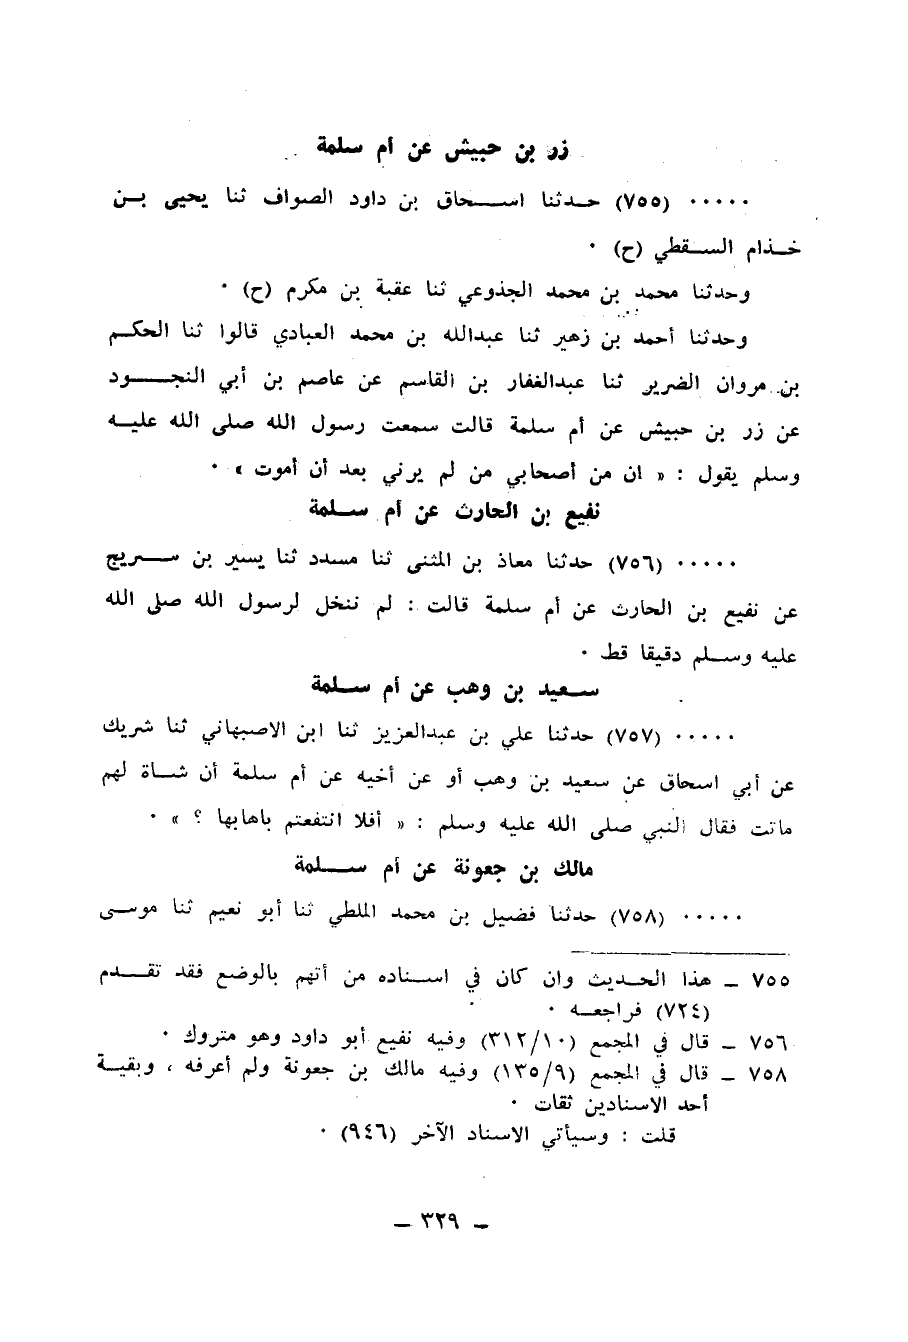 زر بن حبيش عن أم سلمة
۰۰۰۰۰ (٧٥٥) حدثنا اسحاق بن داود الصواف ثنا يحيى بن
خذام السقطي (ح) ٠
وحدثنا محمد بن محمد الجذوعي ثنا عقبة بن مكرم (ح) ٠
وحدثنا أحمد بن زهير ثنا عبدالله بن محمد العبادي قالوا ثنا الحكم
بن مروان الضرير ثنا عبدالغفار بن القاسم عن عاصم بن أبي النجود
عن زر بن حبيش عن أم سلمة قالت سمعت رسول الله صلى الله عليه
وسلم يقول : « ان من أصحابي من لم يرني بعد أن أموت » ٠
نفيع بن الحارث عن أم سلمة
۰۰۰۰۰ (٧٥٦) حدثنا معاذ بن المثنى ثنا مسدد ثنا يسير بن سريج
عن نفيع بن الحارث عن أم سلمة قالت : لم ننخل لرسول الله صلى الله
عليه وسلم دقيقا قط ٠
سعيد بن وهب عن أم سلمة
۰۰۰۰۰ (٧٥٧) حدثنا علي بن عبدالعزيز ثنا ابن الاصبهاني ثنا شريك
عن أبي اسحاق عن سعيد بن وهب أو عن أخيه عن أم سلمة أن شاة لهم
ماتت فقال النبي صلى الله عليه وسلم : « أفلا انتفعتم باهابها ؟ » ٠
مالك بن جعونة عن أم سلمة
۰۰۰۰۰ (٧٥٨) حدثنا فضيل بن محمد الملطي ثنا أبو نعيم ثنا موسى
٧٥٥ ـ هذا الحديث وان كان في اسناده من أتهم بالوضع فقد تقدم
(٧٢٤) فراجعه ٠
٧٥٦ ـ قال في المجمع (٣١٢/١٠) وفيه نفيع أبو داود وهو متروك ٠
٧٥٨ ـ قال في المجمع (١٣٥/٩) وفيه مالك بن جعونة ولم أعرفه ، وبقية
أحد الاسنادين ثقات ٠
قلت : وسيأتي الاسناد الآخر (٩٤٦) ٠
ـ ٣٢٩ ـ